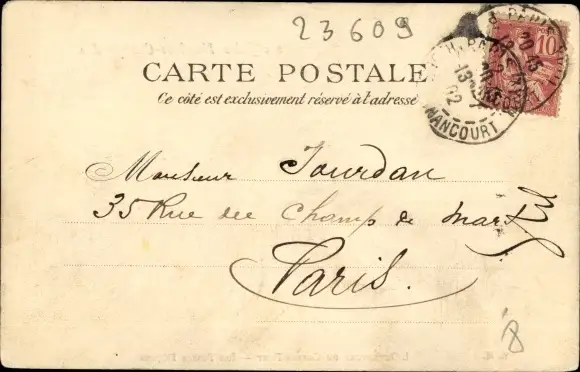 23609
CARTE POSTALE
Ce côté est exclusivement réservé à l'adresse
10
PARIS
20 15
13
02
NANCOURT
Monsieur Jourdan
35 Rue du Champ de Mars
Paris.
8